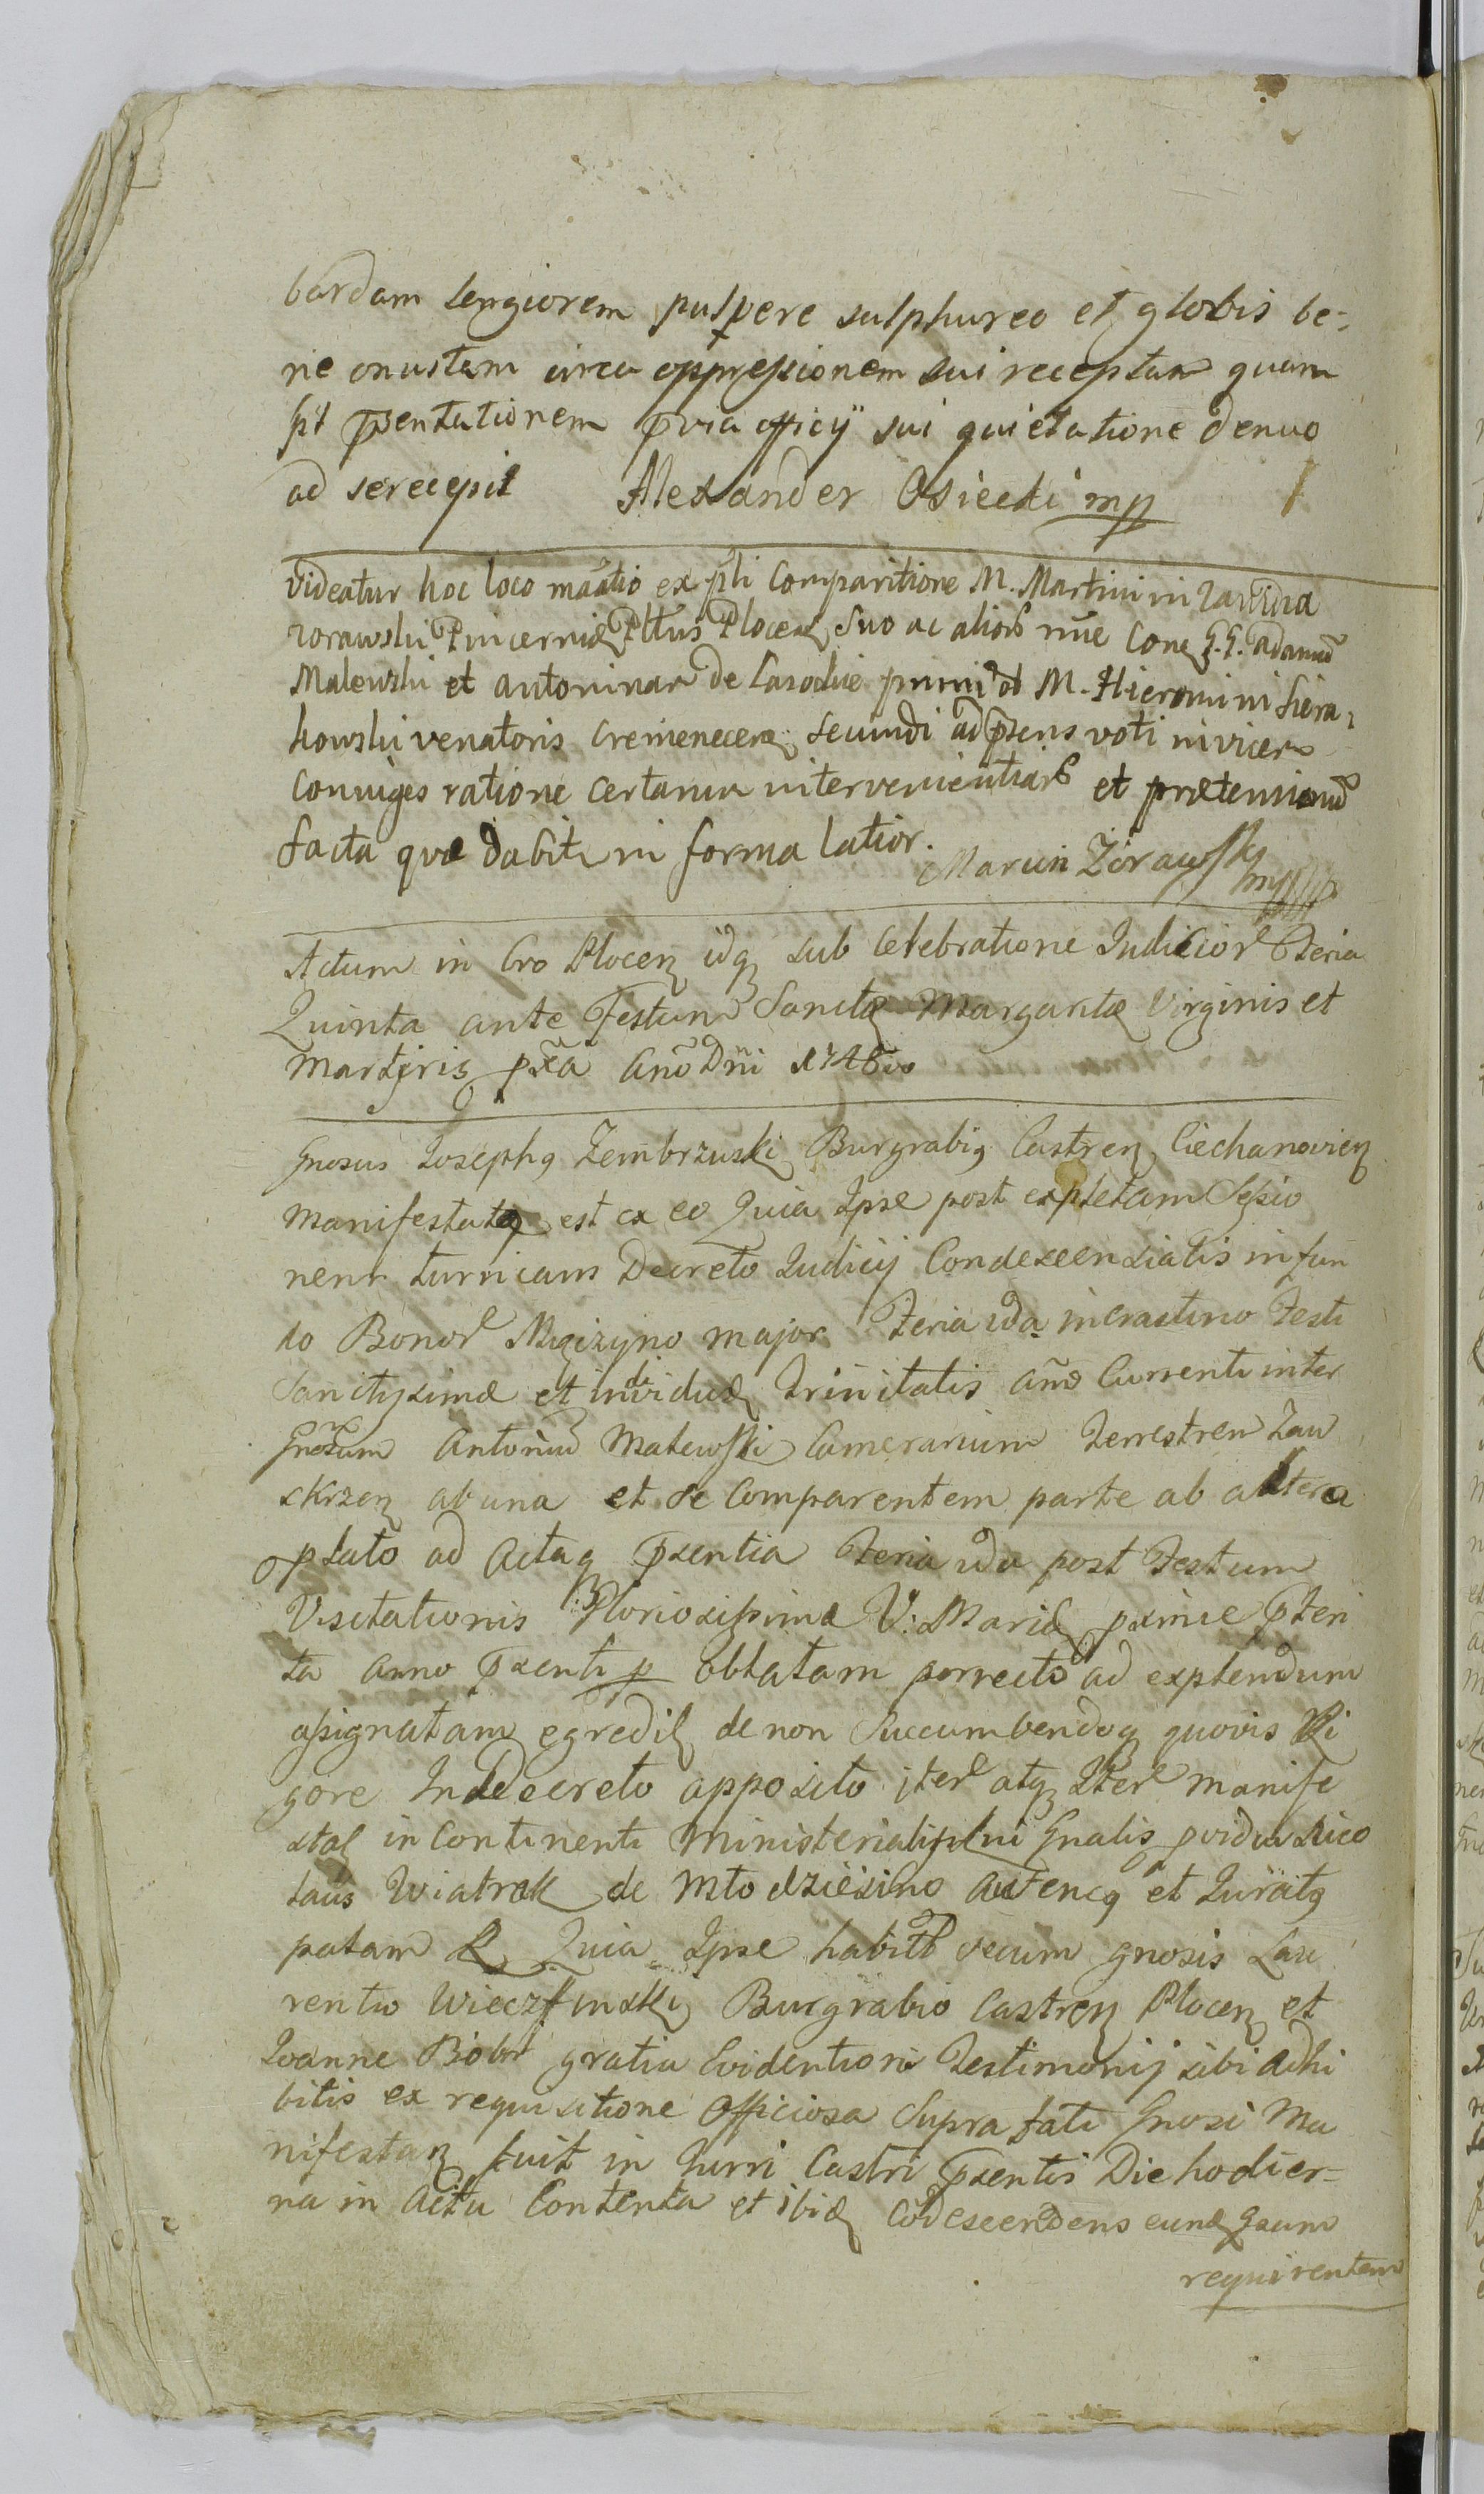 bardam lengiorem pulvere sulphureo et globis be-
ne onustam circa oppressionem sui receptam quam
pt p̄sentationem p̄via officÿ sui quietatione denuo
ad se recepit Alexander Osiecki mp
Videatur hoc loco máátio ex pli Comparitione M. Martini in
zorawski Pincernæ Pltus Plocen Suo ac alior nñe Conc G.G. Adamũ
Malewski et antoninam de Lasockie primi M. Hieronimi Siera-
kowski venatoris Cremenecen Secundi ad p̄sens voti invicem
Coniuges ratione certarum intervenientiar et prætensionũ
facta quæ dabitr in forma latior. Marcin Zorawski mp
Actum in Cro Plocen idq sub Celebratione Iudicior Feria
Quinta ante Festum Sanctæ Margaritæ Virginis et
Martyris pxa Ano Dni 1746to
Gnosus Iosephq Zembrzuski Burgrabiq Castren Ciechanovien
Manifestatq est ex eo Quia Ipse post expletam Sessio
nem turricam Decreto Iudicij Condescensialis in fun
do Bonor major Feria 2da in crastino Festi
Sanctissimæ et individuæ Trinitatis año Currenti inter
Gnosum Antoniũ Malewski Camerarium Terrestrem Zaw
skrzen ab una et se Comparentem parte ab altera
plato ad Actaq p̄sentia Feria 2da post Festum
Visitationis Gloriosissimæ V. Mariæ pxime p̄teri
ta anno p̄senti p oblatam porrecto ad explendum
assignatam egredit de non Succumbendoq quovis Ri
gore In Decreto apposito iter atq Iter manife
stat in Continenti Ministerialis Gnalis pvidus Nico
laus Wiatrak de Młodziesino autencq et Iuratq
palam R Quia Ipse habitis secum gnosis Lau
rentio Wieczfinski Burgrabio Castren Plocen et
Ioanne Bobr gratia Evidentioris Testimonij sibi adhi
bitis ex requisitione Officiosa Supra fati Gnosi Ma
nifestan fuit in Turri Castri p̄sentis Die hodier=
na in Actu Contenta et ibid Codescendens eund Gsum
requirentem